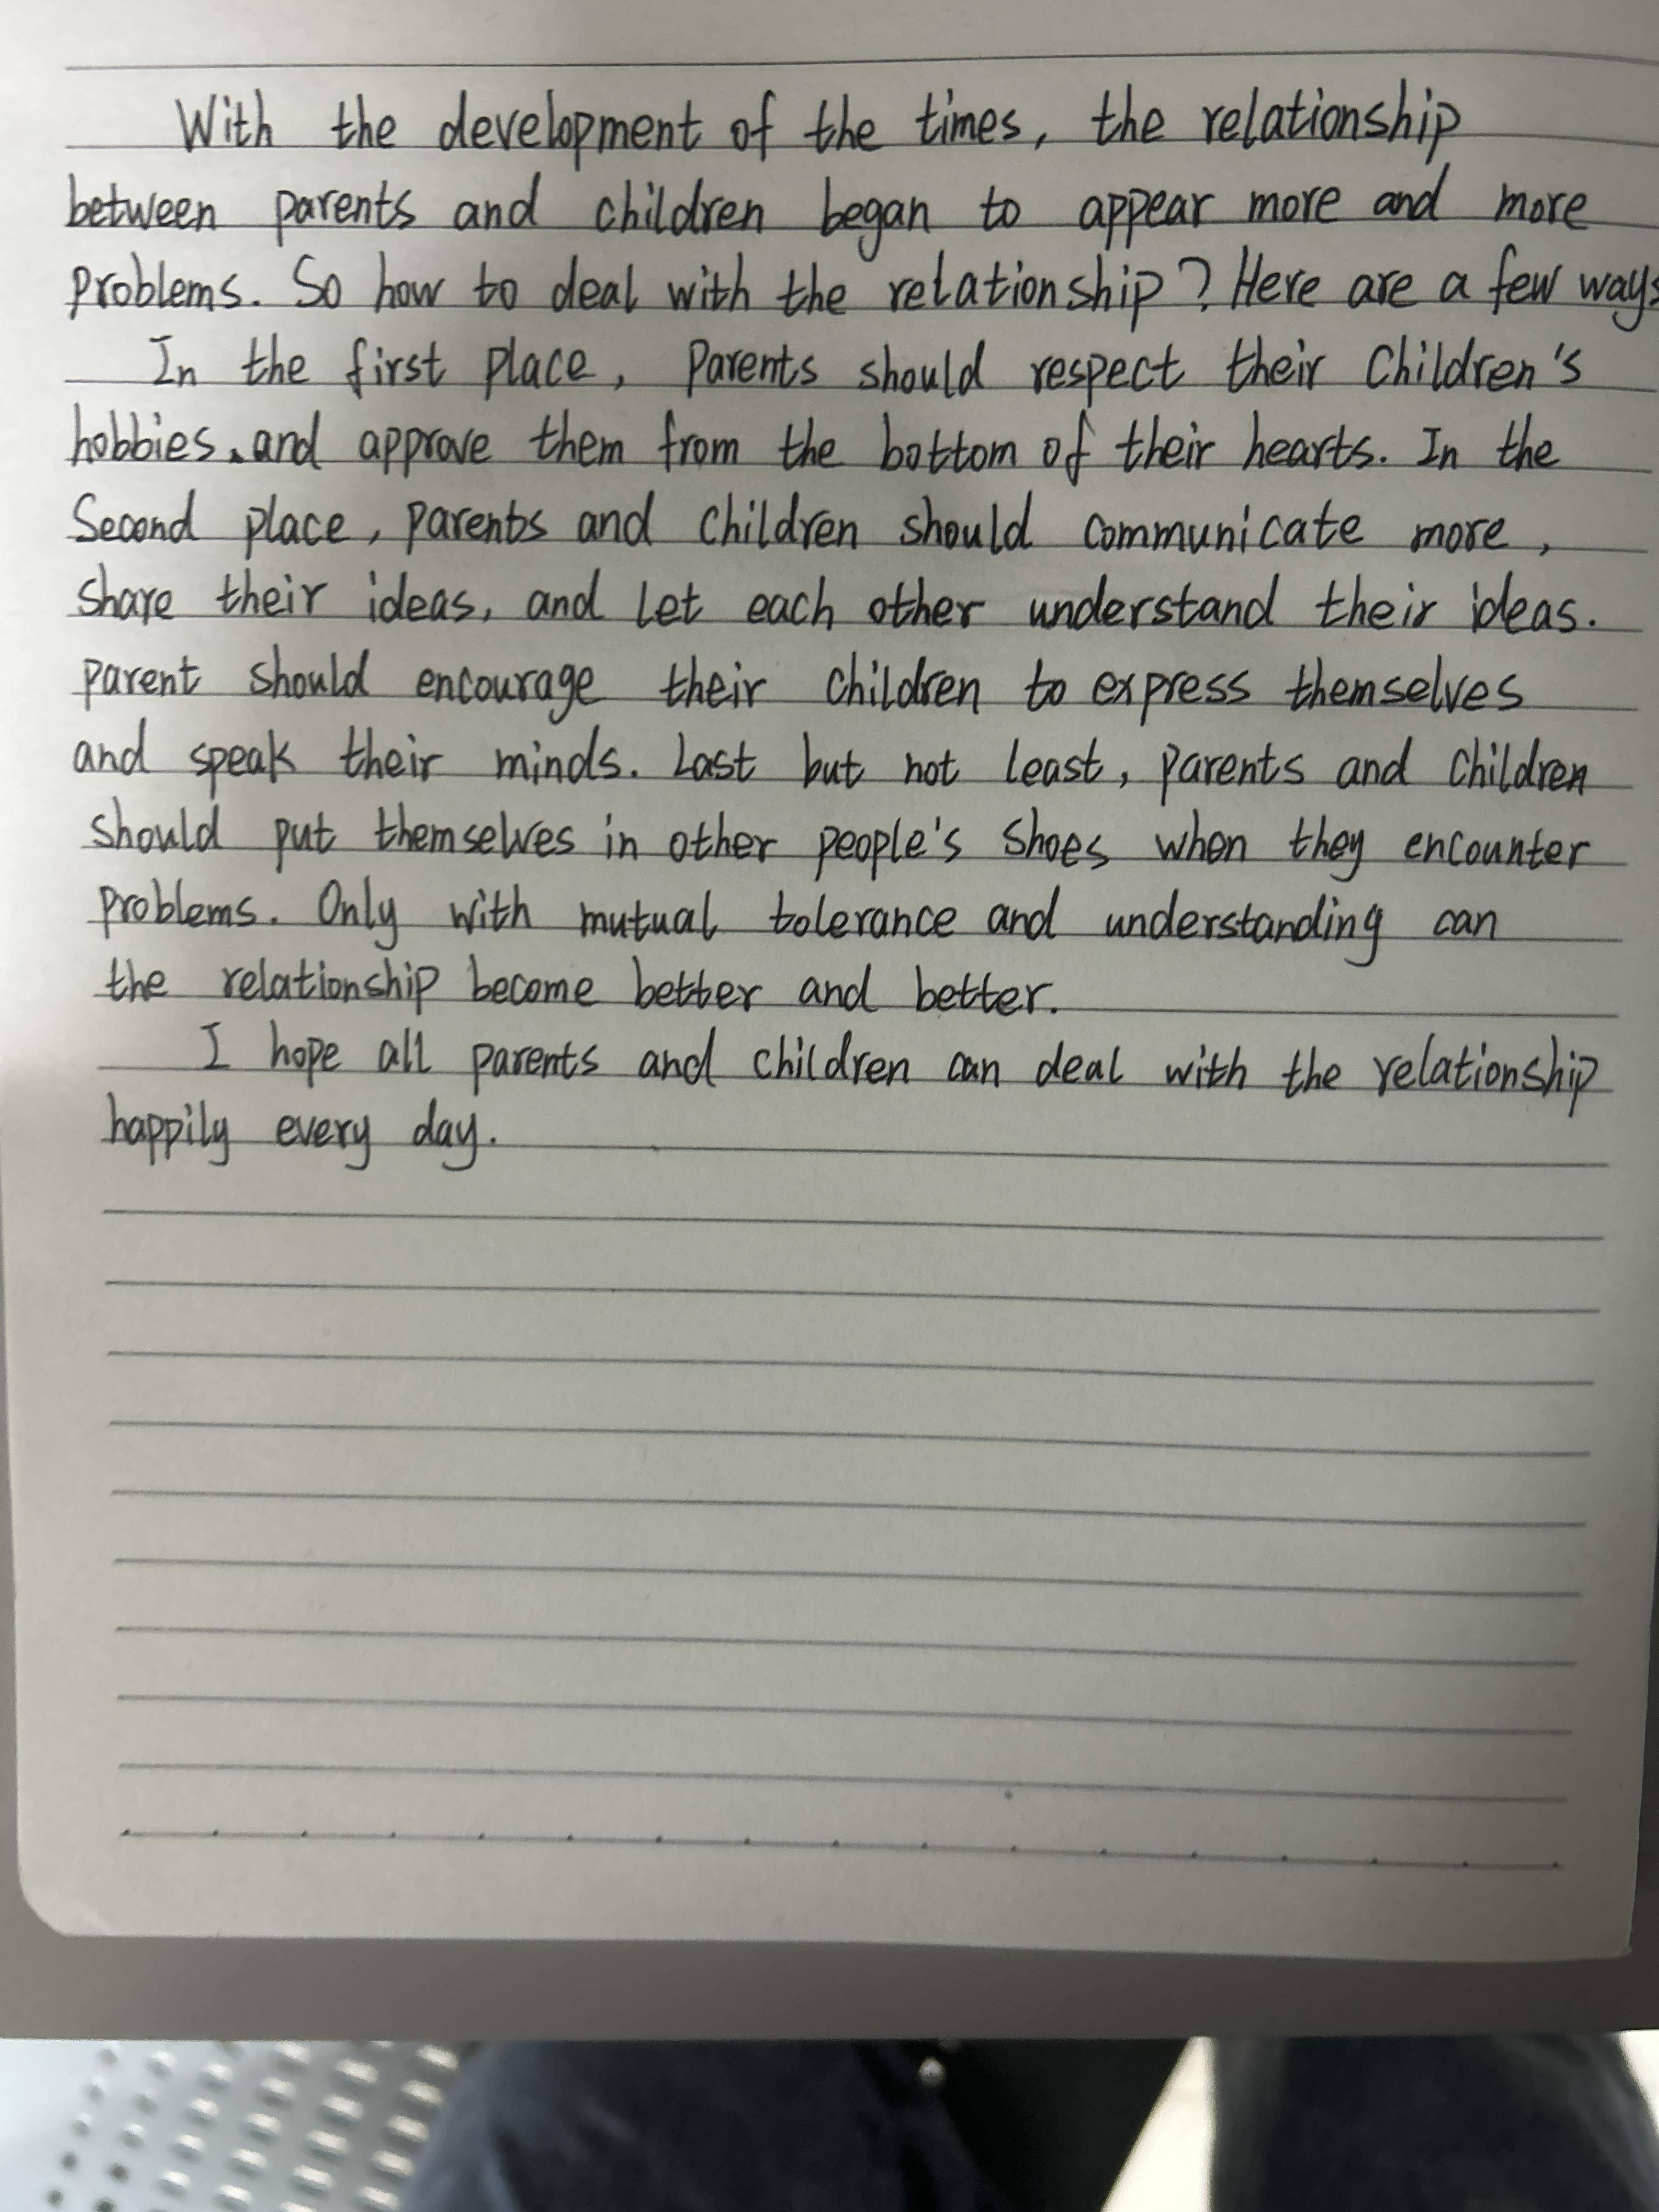 With the development of the times, the relationship
between parents and children began to appear more and more
problems. So how to deal with the relationship? Here are a few ways
In the first place, parents should respect their children's
hobbies, and approve them from the bottom of their hearts. In the
second place, parents and children should communicate more,
share their ideas, and let each other understand their ideas.
parent should encourage their children to express themselves
and speak their minds. Last but not least, parents and children
should put themselves in other people's shoes when they encounter
problems. Only with mutual tolerance and understanding can
the relationship become better and better.
I hope all parents and children can deal with the relationship
happily every day.